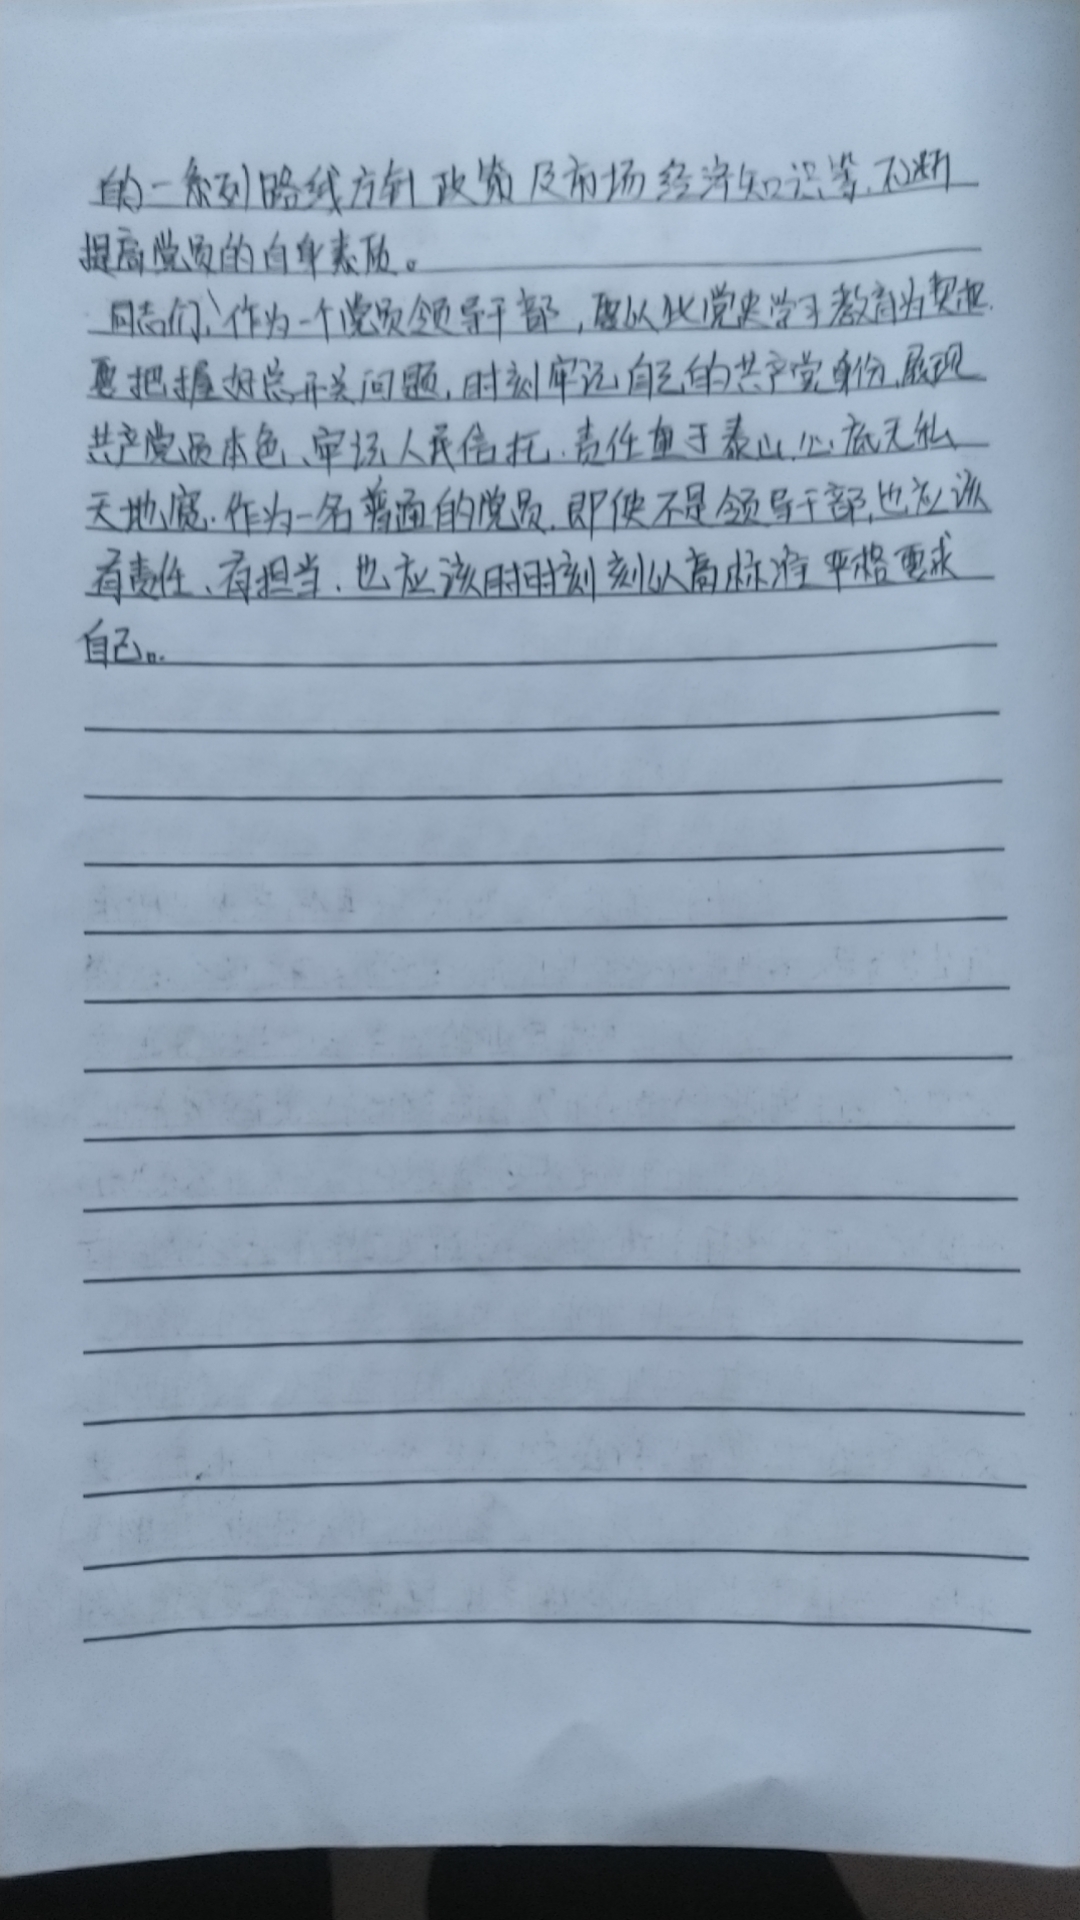 的一系列路线方针政策及市场经济知识等,不断
提高党员的自身素质。
同志们,作为一个党员领导干部,要以此党史学习教育为契机.
要把握好总开关问题,时刻牢记自己的共产党身份、展现
共产党员本色、牢记人民信托.责任重于泰山,心底无私
天地宽.作为一名普通的党员,即使不是领导干部,也应该
有责任、有担当.也应该时时刻刻以高标准严格要求
自己。